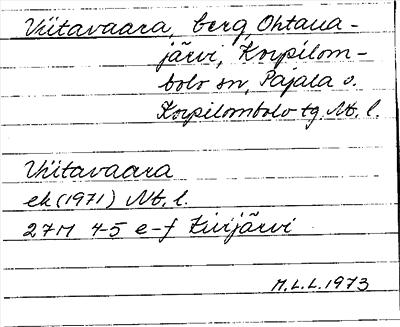 Viitavaara, berg, Ohtana-
järvi, Korpilom-
bolo sn, Pajala o.
Korpilombolo tg Nb. l.
Viitavaara
ek (1971) Nb. l.
27M 4-5 e-f Kivijärvi
M.L.L. 1973